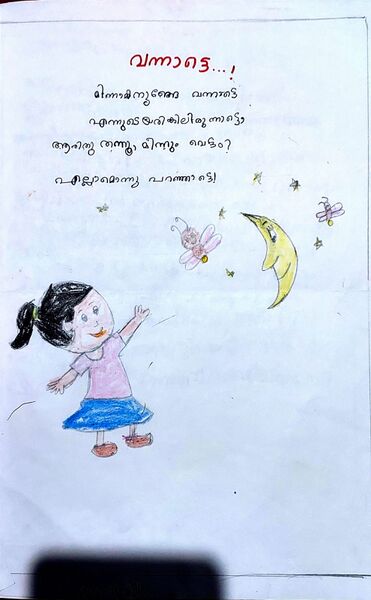 വന്നാട്ടെ...!
മിന്നാമിനുങ്ങേ വന്നാട്ടെ
എന്നുടെയരികിലിരുന്നാട്ടെ
ആരിതു തന്നൂ, മിന്നും വെട്ടം?
എല്ലാമൊന്നു പറഞ്ഞാട്ടെ!